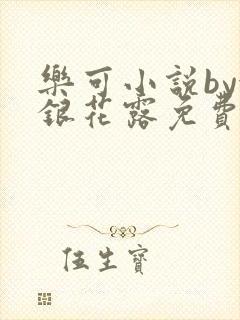 樂可小説by
銀花露免費
伍生寶